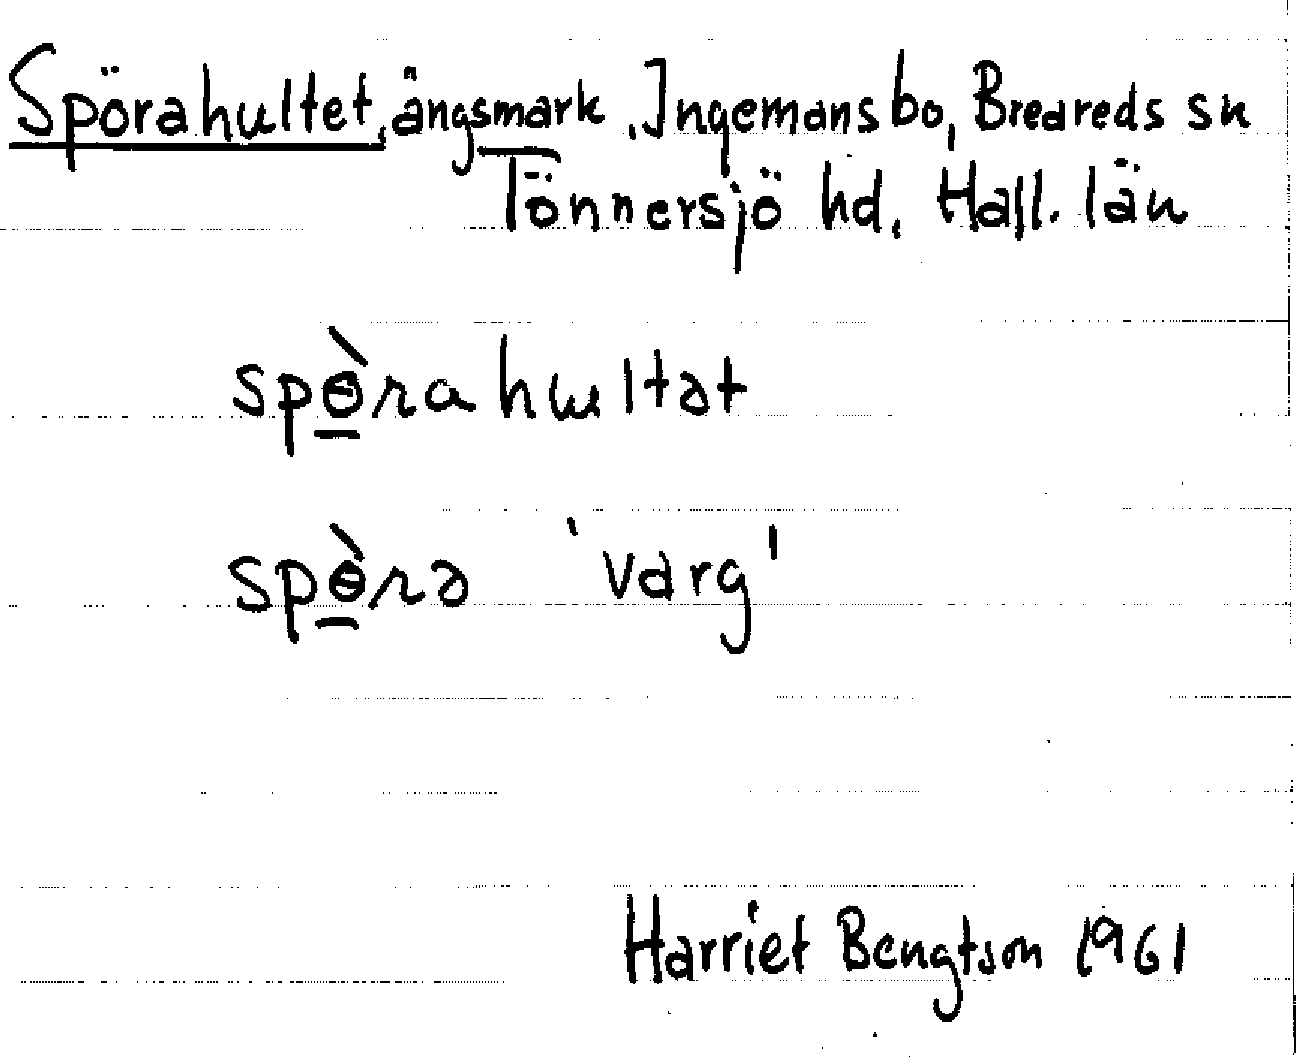 Spörahultet, ängsmark, Ingemansbo, Breareds sn
Tönnersjö hd, Hall. län
spɵ̲̀rahultət
spɵ̲̀rə 'varg'
Harriet Bengtson 1961